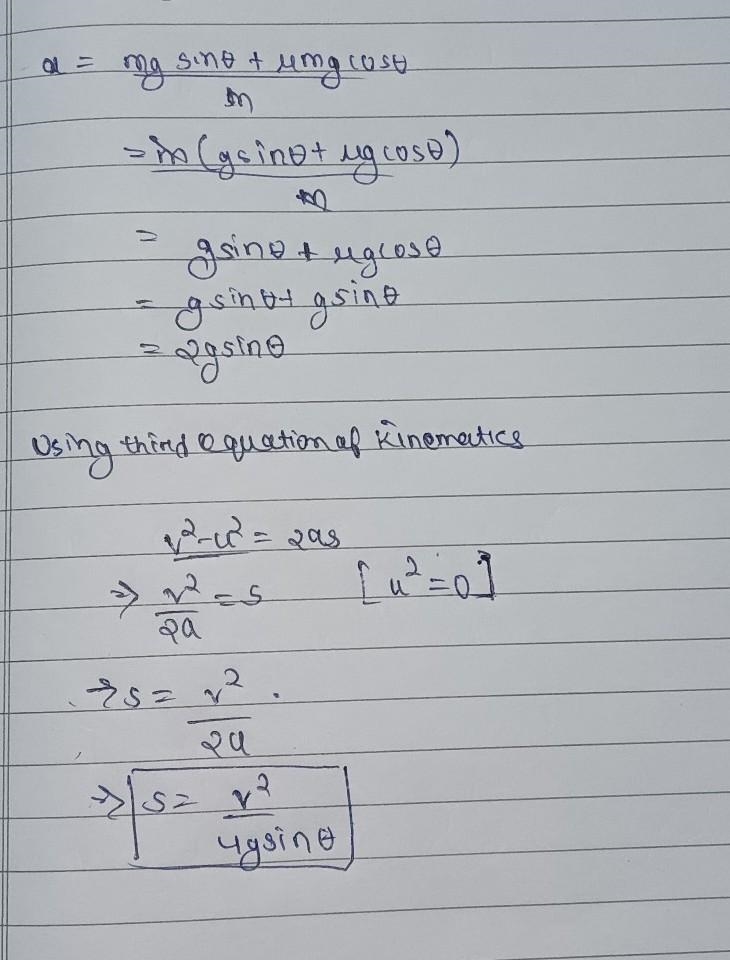 a = mg sinθ + μmg cosθ
m
= m (gsinθ + μgcosθ)
m
= gsinθ + μgcosθ
= gsinθ + gsinθ
= 2gsinθ
Using third equation of Kinematics
v²-u² = 2as
⇒ v² = s [u²=0]
2a
⇒ s = v².
2a
⇒ s = v²
4gsinθ